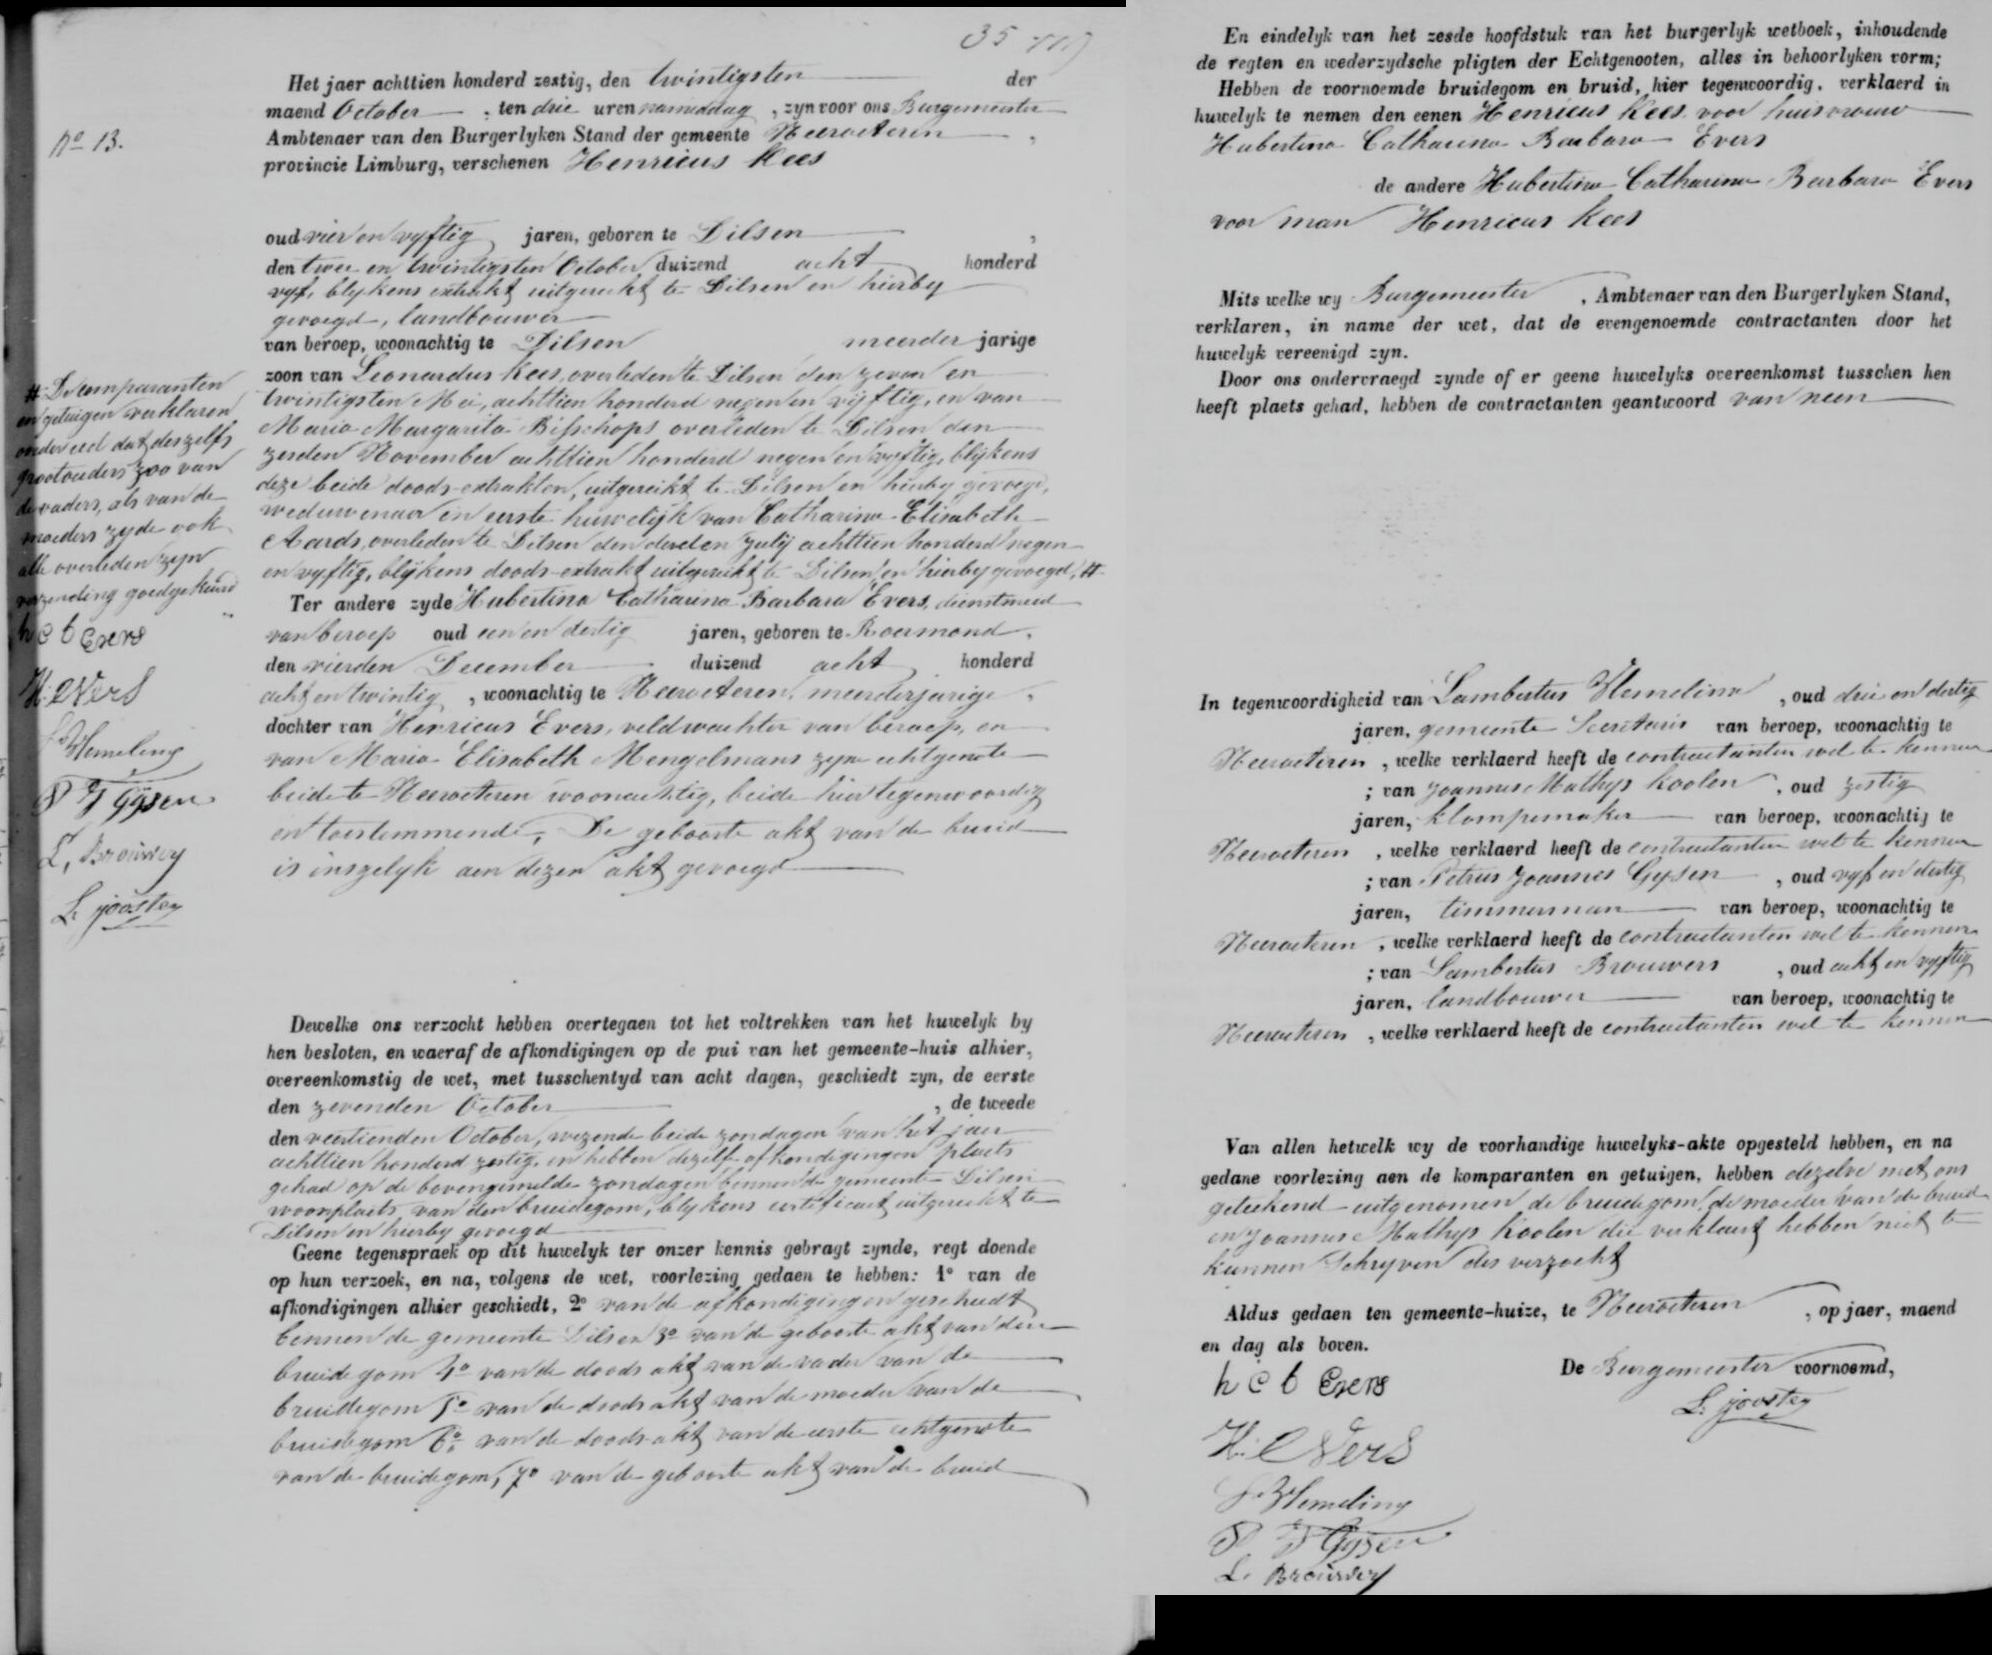 35
No 13.
Het jaer achttien honderd zestig, den twintigsten der
maend October , ten drie uren namiddag , zyn voor ons Burgemeester
Ambtenaer van den Burgerlyken Stand der gemeente Neeroeteren ,
provincie Limburg, verschenen Henricus Kees
oud vier en vyftig jaren, geboren te Dilsen ,
den twee en twintigsten October duizend acht honderd
vyf, blykens extrakt uitgereikt te Dilsen en hierby
gevoegd, landbouwer
van beroep, woonachtig te Dilsen meerder jarige
zoon van Leonardus Kees, overleden te Dilsen den zeven en
twintigsten Mei, achttien honderd negen en vyftig, en van
Maria Margarita Bisschops overleden te Dilsen den
zesden November achttien honderd negen en vyftig, blykens
deze beide doods-extrakten, uitgereikt te Dilsen en hierby gevoegd,
weduwenaar in eerste huwelijk van Catharina Elisabeth
Aards, overleden te Dilsen den derden july achttien honderd negen
en vyftig, blykens doods-extrakt uitgereikt te Dilsen en hierby gevoegd, #
# De comparanten
en getuigen verklaren
onder eed dat deszelfs
grootouders zoo van
de vaders, als van de
moeders zyde ook
alle overleden zyn
verzending goedgekeurd
h c b Evers
H. Evers
L Hemeling
P J Gysen
L, Brouwers
L. joosten
Ter andere zyde Hubertina Catharina Barbara Evers, dienstmeid
van beroep oud een en dertig jaren, geboren te Roermond,
den vierden December duizend acht honderd
acht en twintig , woonachtig te Neeroeteren, meerderjarige,
dochter van Henricus Evers, veldwachter van beroep, en
van Maria Elisabeth Mengelmans zyne echtgenote
beide te Neeroeteren woonachtig, beide hier tegenwoordig
en toestemmende, De geboorte akt van de bruid
is insgelyk aen dezen akt gevoegd
Dewelke ons verzocht hebben overtegaen tot het voltrekken van het huwelyk by
hen besloten, en waeraf de afkondigingen op de pui van het gemeente-huis alhier,
overeenkomstig de wet, met tusschentyd van acht dagen, geschiedt zyn, de eerste
den zevenden October , de tweede
den veertienden October, wezende beide zondagen van het jaer
achttien honderd zestig, en hebben dezelfe afkondigingen plaets
gehad op de bovengemelde zondagen binnen de gemeente Dilsen
woonplaets van den bruidegom, blykens certificaet uitgereikt te
Dilsen en hierby gevoegd
Geene tegenspraek op dit huwelyk ter onzer kennis gebragt zynde, regt doende
op hun verzoek, en na, volgens de wet, voorlezing gedaen te hebben: 1° van de
afkondigingen alhier geschiedt, 2° van de afkondigingen geschiedt
bennen de gemeente Dilsen 3° van de geboorte akt van den
bruidegom 4° van de doods akt van de vader van de
bruidegom 5° van de doods akt van de moeder van de
bruidegom 6° van de doods-akt van de eerste echtgenote
van de bruidegom, 7° van de geboorte akt van de bruid
En eindelyk van het zesde hoofdstuk van het burgerlyk wetboek, inhoudende
de regten en wederzydsche pligten der Echtgenooten, alles in behoorlyken vorm;
Hebben de voornoemde bruidegom en bruid, hier tegenwoordig, verklaerd in
huwelyk te nemen den eenen Henricus Kees voor huisvrouw
Hubertina Catharina Barbara Evers
de andere Hubertina Catharina Barbara Evers
voor man Henricus Kees
Mits welke wy Burgemeester , Ambtenaer van den Burgerlyken Stand,
verklaren, in name der wet, dat de evengenoemde contractanten door het
huwelyk vereenigd zyn.
Door ons ondervraegd zynde of er geene huwelyks overeenkomst tusschen hen
heeft plaets gehad, hebben de contractanten geantwoord van neen
In tegenwoordigheid van Lambertus Hemeling , oud drie en dertig
jaren, gemeente Secretaris van beroep, woonachtig te
Neeroeteren , welke verklaerd heeft de contractanten wel te kennen
; van Joannes Mathys Koolen , oud zestig
jaren, klompemaker van beroep, woonachtig te
Neeroeteren , welke verklaerd heeft de contractanten wel te kennen
; van Petrus Joannes Gysen , oud vyf en dertig
jaren, timmerman van beroep, woonachtig te
Neeroeteren , welke verklaerd heeft de contractanten wel te kennen
; van Lambertus Brouwers , oud acht en vyftig
jaren, landbouwer van beroep, woonachtig te
Neeroeteren , welke verklaerd heeft de contractanten wel te kennen
Van allen hetwelk wy de voorhandige huwelyks-akte opgesteld hebben, en na
gedane voorlezing aen de komparanten en getuigen, hebben dezelve met ons
geteekend uitgenomen de bruidegom, de moeder van de bruid
en Joannes Mathys Koolen die verklaert hebben niet te
kunnen schryven des verzocht
Aldus gedaen ten gemeente-huize, te Neeroeteren , op jaer, maend
en dag als boven.
De Burgemeester voornoemd,
L. joosten
h c b Evers
H. Evers
L Hemeling
P J Gysen
L. Brouwers